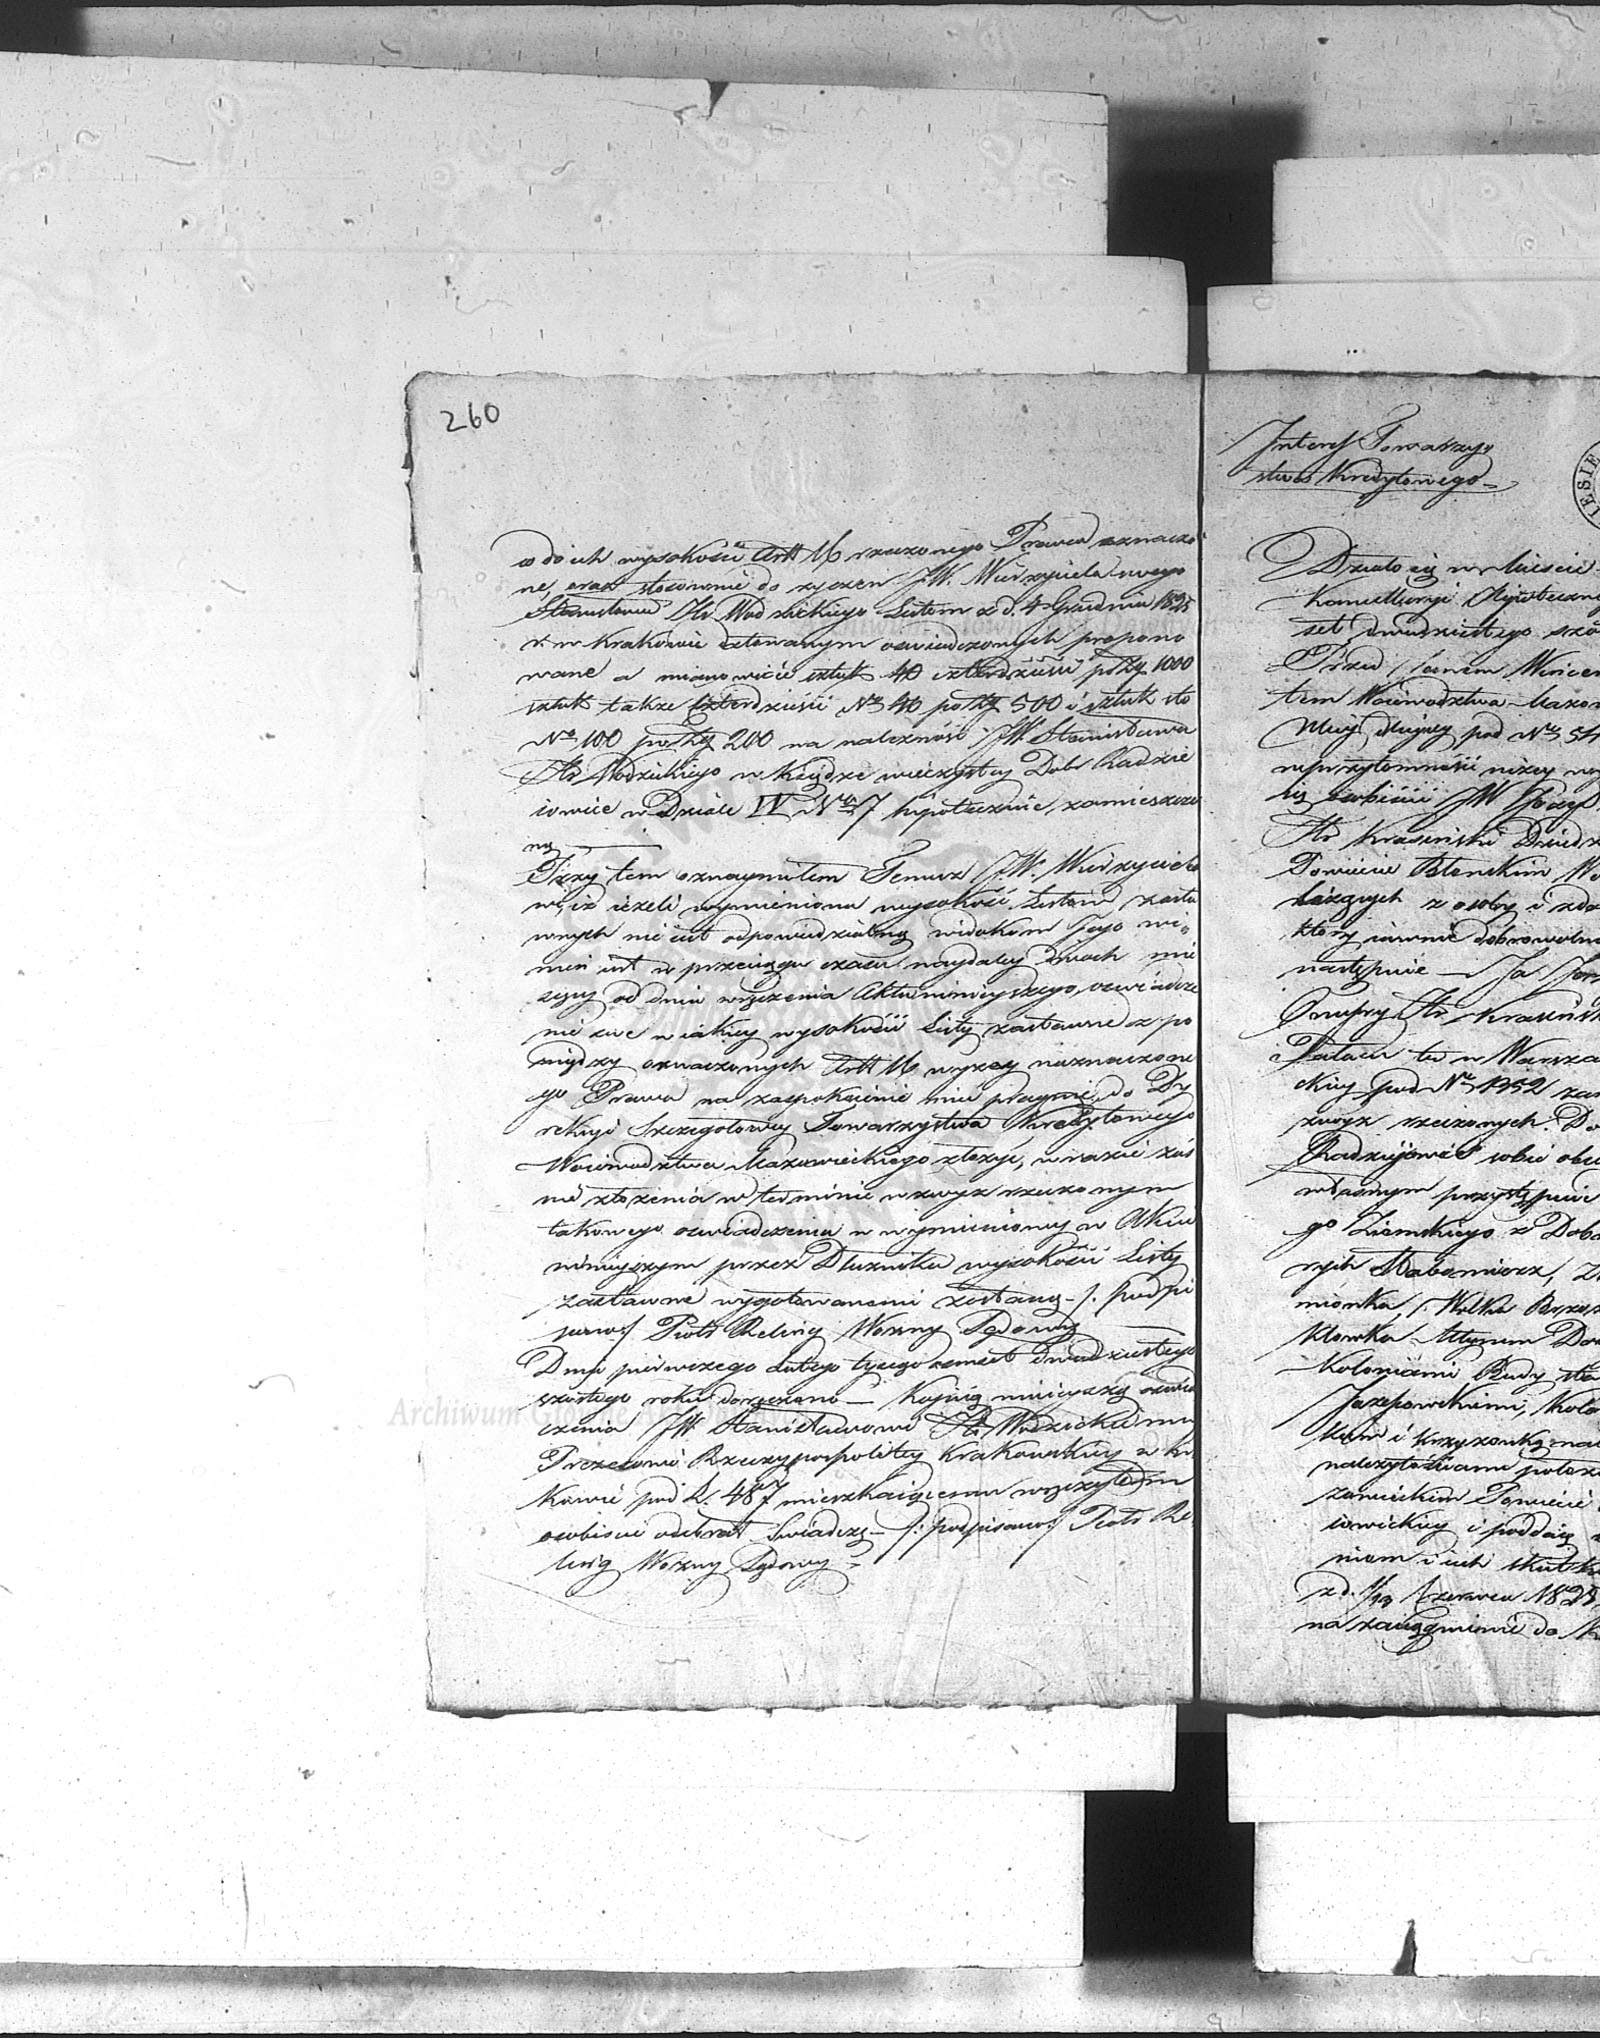 260
co do ich wysokości Artt 16 rzeczonego Prawa oznaczo
ne, oraz stosownie do życzeń JW. Wierzyciela swego
Stanisława Hr Wodzickiego Listem z d. 4 Grudnia 1825
r. w Krakowie datowanym oswiadczonych propono
wane a mianowicie sztuk 40 czterdzieści po Złp 1000
sztuk także czterdzieści No 40 po Złp 500 i sztuk sto
No 100 po Złp 200 na należność JW Stanisława
Hr Wodzickiego w Księdze wieczystey Dobr Radzie
iowice w Dziale IV No 7 hipotecznie zamieszczo
ną
Przy tem oznaymiłem Temuż JW. Wierzycielo
wi, iż ieżeli wymieniona wysokość Listów zasta
wnych nie iest odpowiedzialną widokom Jego wi
nien iest w przeciągu czasu naydaley dwoch mie
sięcy od dnia wręczenia Aktu ninieyszego, oswiadcze
nie swe w iakiey wysokości Listy zastawne z po
między oznaczonych Artt 16 wyżey naznaczone
go Prawa na zaspokoienie mieć pragnie, do Dy
rekcyi Szczegołowey Towarzystwa Kredytowego
Woiewodztwa Mazowieckiego złożyć, w razie zaś
nie złożenia w terminie wzwyż rzeczonym
takowego oswiadczenia w wymienioney w Akcie
ninieyszym przez Dłużnika wysokości Listy
zastawne wygotowanemi zostaną /: podpi
sano :/ Piotr Woźny Sądowy
Dnia pierwszego Lutego tysiąc osmset dwudziestego
szóstego roku doręczono Kopiią ninieyszą oswiad
czenia JW Stanisławowi Hr Wodzickiemu
Prezesowi Rzeczypospolitey Krakowskiey w Kra
kowie pod L. 487 mieszkaiącemu
osobiscie odebrał Swiadczę /: podpisano :/ Piotr Re
Woźny Sądowy
Interess Towarzy
stwa Kredytowego
Działo się w Mieście
Kancellaryi Hypoteczney
set dwudziestego szós
Przed Janem Wincen
tem Woiewodztwa Mazow
Ulicy długiey pod No 54
w przytomności niżey wy
się osobiscie JW Józef
Hr Krasinski Dziedz
Powiecie Błonskim Wo
leżących z osoby i zda
który iawnie dobrowolnie
następnie Ja Józef
Onufry Hr Krasińsk
Pałacu tu w Warsza
ckiey pod No 1352 zam
zwyż rzeczonych Do
Radzieiowice sobie obr
własnym przystępuie
go Ziemskiego z Dobr
nych
mionka / Wólka
Korytem
Koloniami Budy sta
Józefowskiemi, Kolo
kiem i krzyżowką na
należytościami położo
zowieckim Powiecie
iowickiey i poddaię
niom i ich skutko
z d. 1/13 Czerwca 1825
na zaciągnienie do K
Archiwum Główne Akt Dawnych